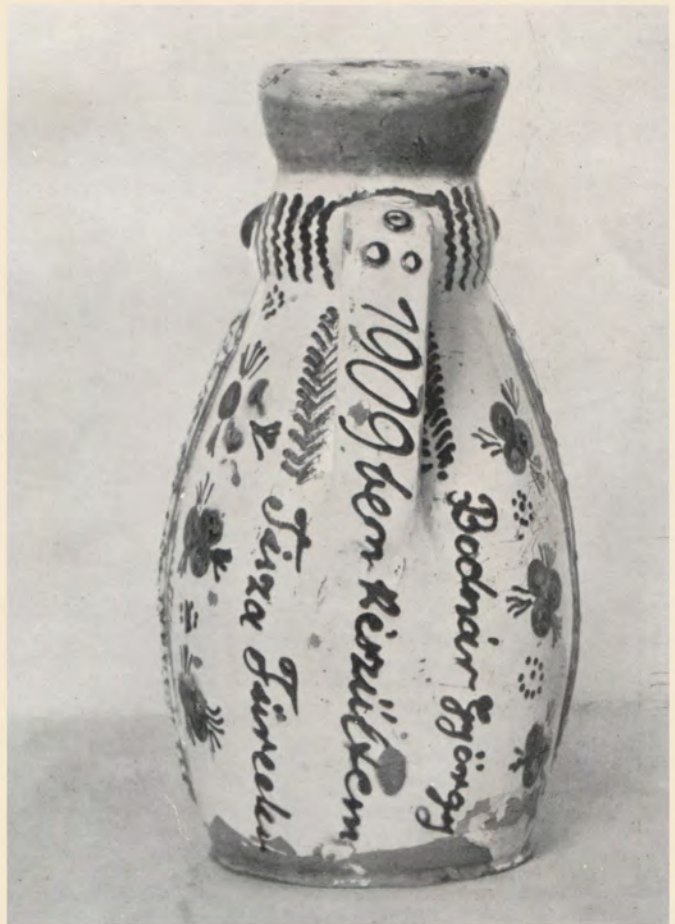 Bodnár György
1909 ben készültem
Tisza Füreden